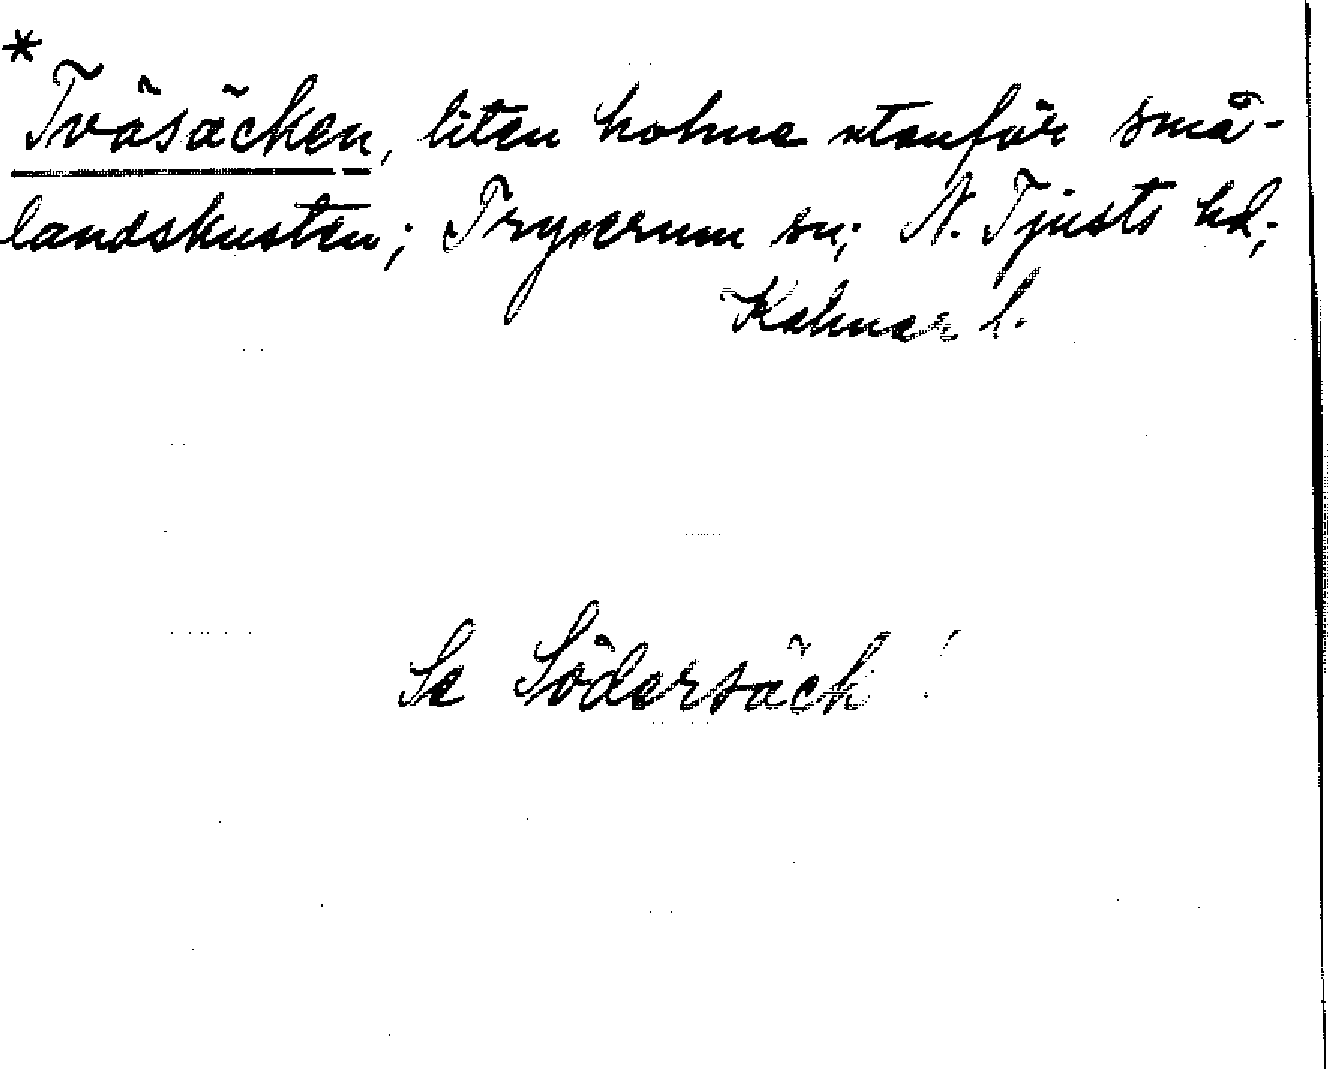 * Tväsäcken, liten holme utanför små-
landskusten; Tryserum sn; N. Tjusts hd;
Kalmar l.
Se Södersäck!